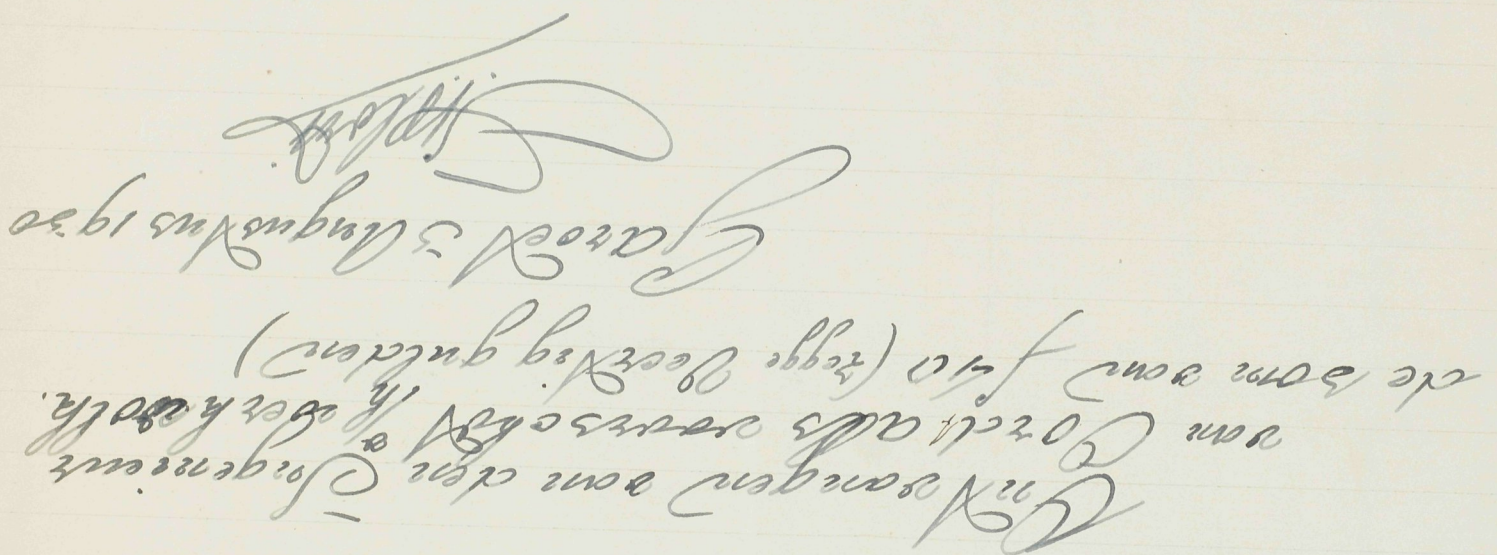 Ontvangen van den Ingenieur
van Cordt als voorschot
de som van f 40 (zegge Veertig gulden)
Garoet 3 Augustus 1930